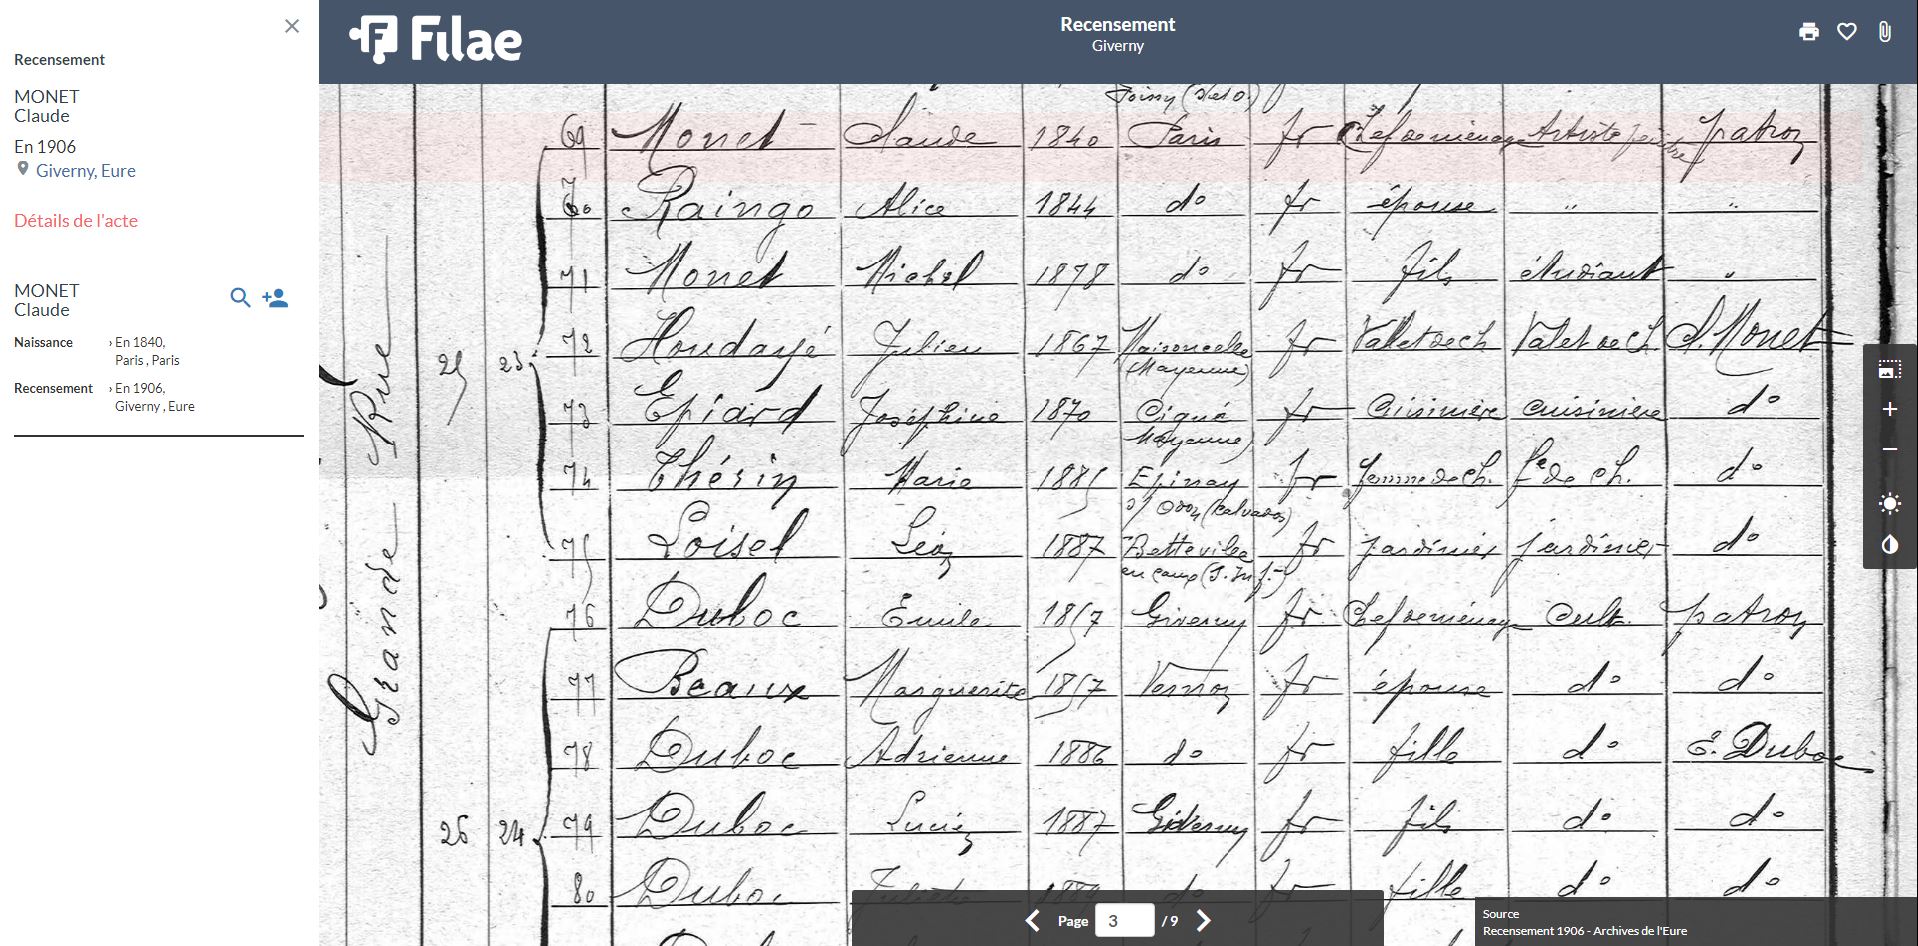 Recensement
MONET
Claude
En 1906
Giverny, Eure
Détails de l'acte
MONET
Claude
Naissance › En 1840,
Paris , Paris
Recensement › En 1906,
Giverny , Eure
Filae
Recensement
Giverny
Grande Rue
Poissy (S et O)
69 Monet Claude 1840 Paris fr Chef de ménage Artiste peintre patron
70 Raingo Alice 1844 do fr épouse " "
71 Monet Michel 1878 do fr fils étudiant "
25 23 72 Houdayé Julien 1867 Maisoncelle fr Vallet de ch Valet de Ch. C. Monet
(Mayenne)
73 Epiard Joséphine 1870 Cigné fr Cuisinière cuisinière do
Mayenne)
74 Thérin Marie 1885 Epinay fr femme de Ch. fe de Ch. do
s/ Odon (Calvados)
75 Loisel Léon 1887 Betteville fr jardinier jardinier do
en caux (S. Inf.)
76 Duboc Émile 1857 Giverny fr Chef de ménage Cult. patron
77 Beaux Marguerite 1857 Vernon fr épouse do do
78 Duboc Adrienne 1886 do fr fille do E. Duboc
26 24 79 Duboc Lucien 1887 Giverny fr fils do do
80 Duboc do fr fille do do
Page 3 / 9
Source
Recensement 1906 - Archives de l'Eure